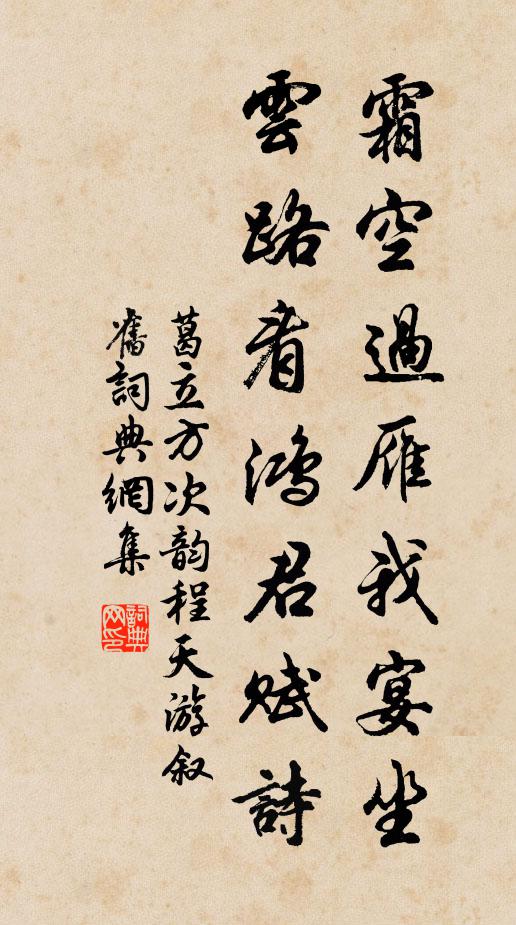 霜空過雁我宴坐
雲路看鴻君賦詩
葛立方次韵程天游叙
舊詞典網集
詞典網印